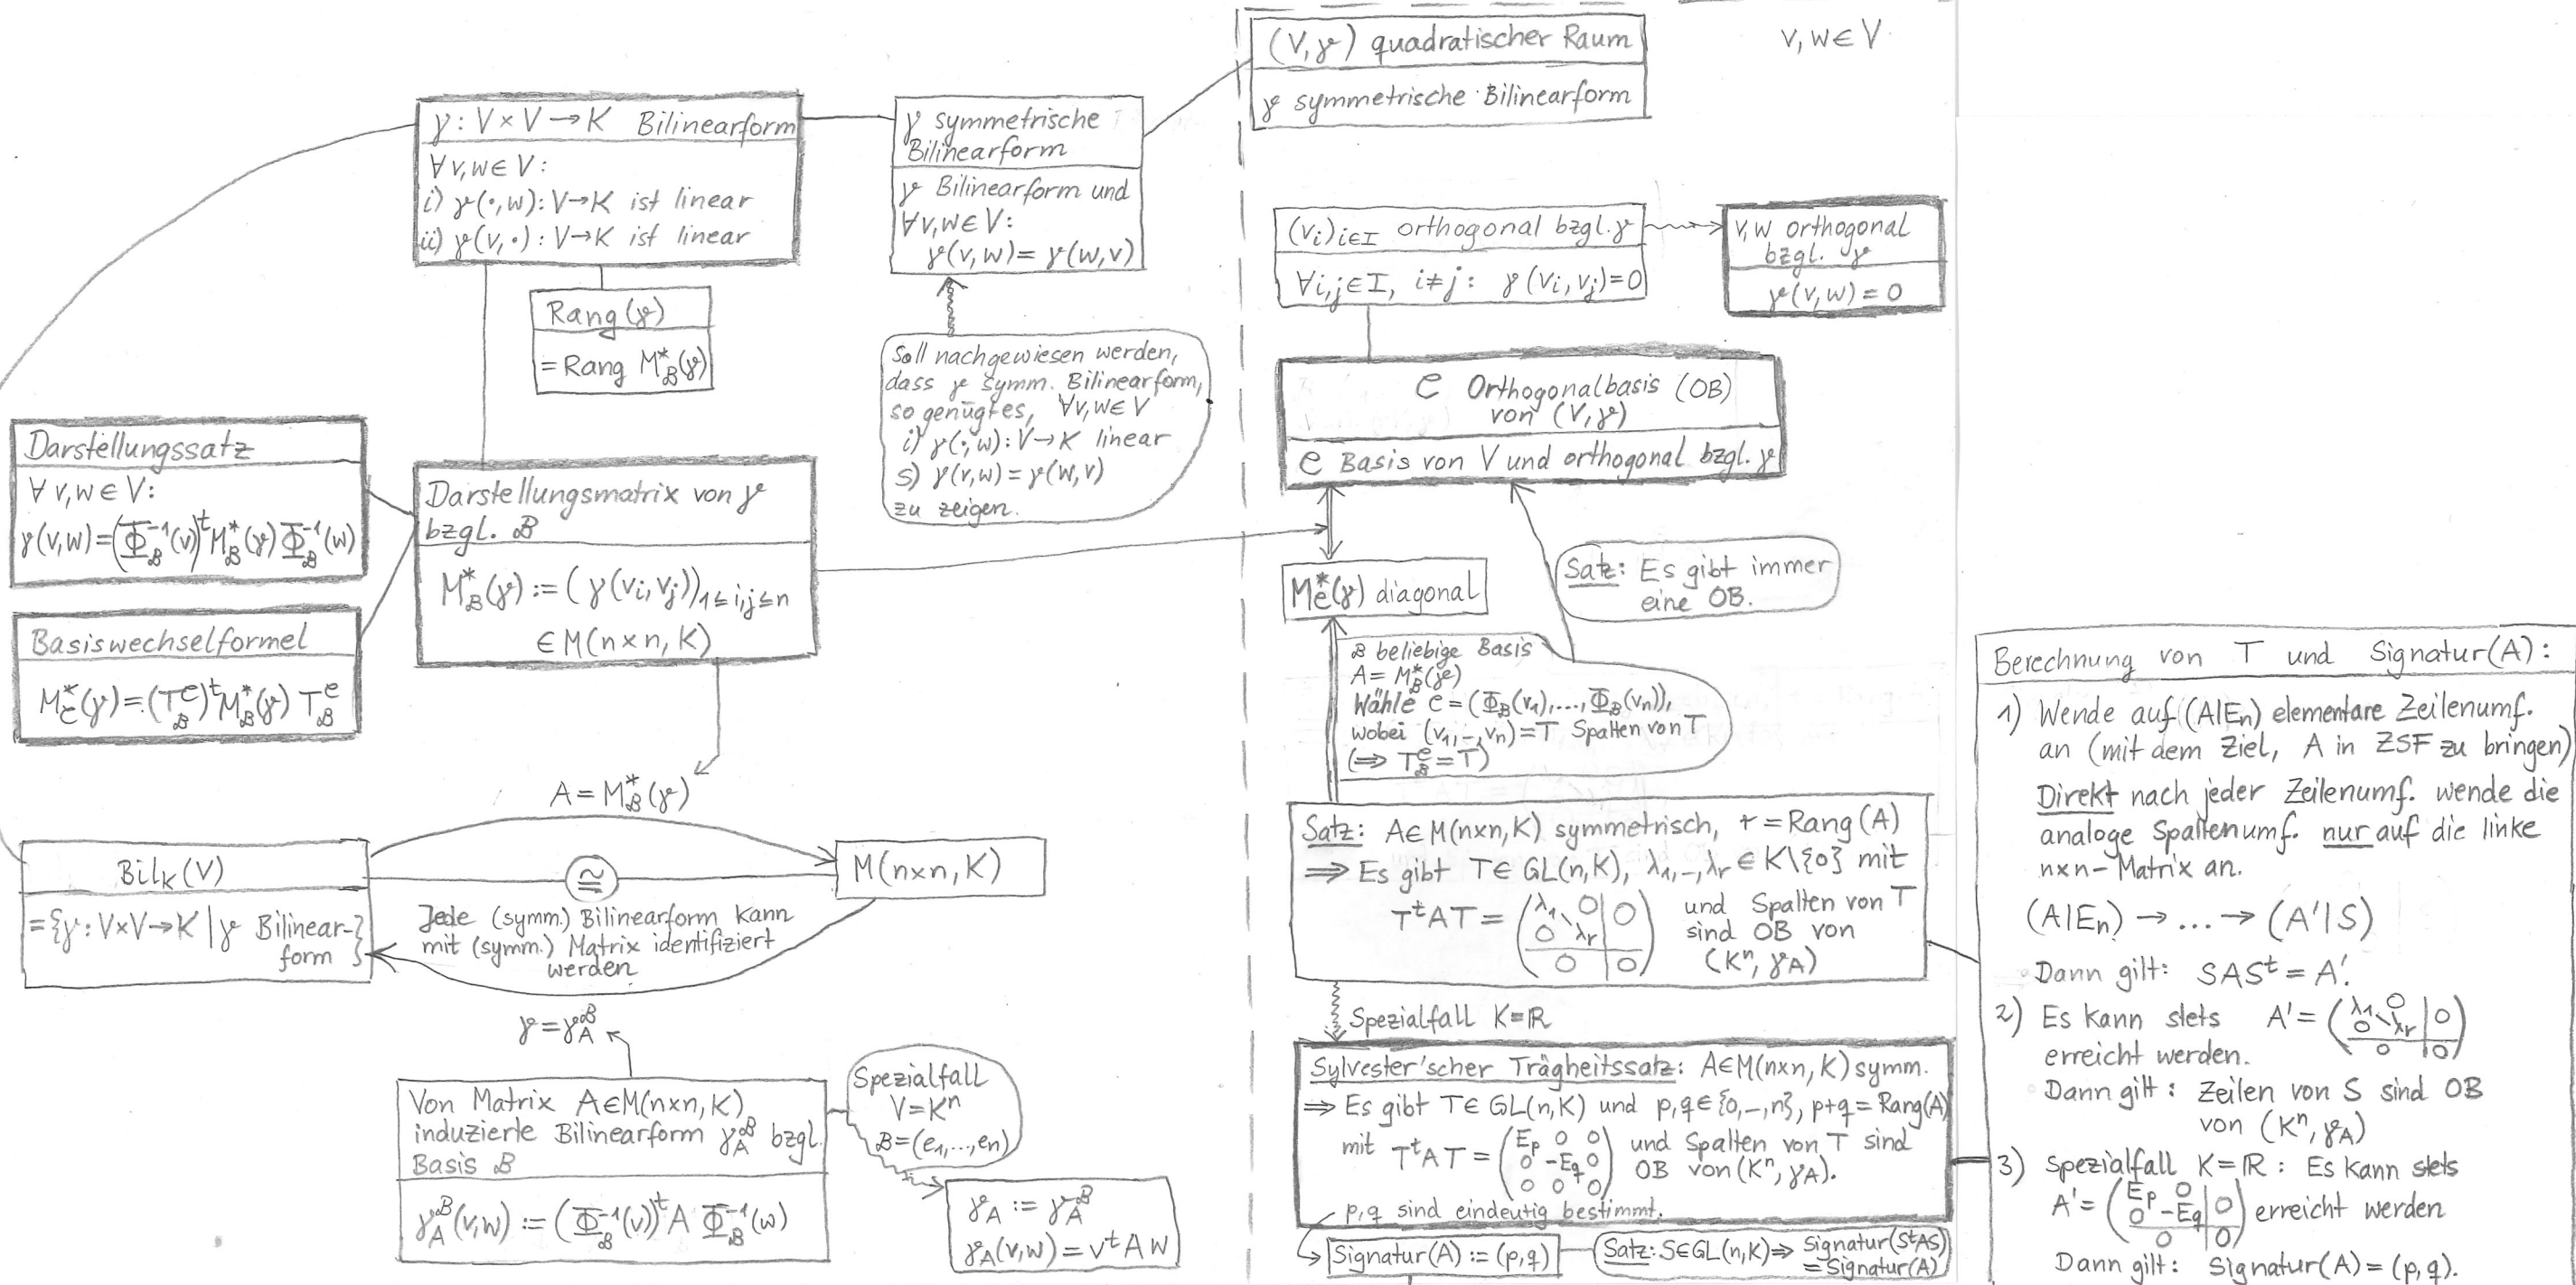 γ: V×V→K Bilinearform
∀v,w∈V:
i) γ(·,w): V→K ist linear
ii) γ(v,·): V→K ist linear
Rang(γ)
= Rang M*_B(γ)
γ symmetrische
Bilinearform
γ Bilinearform und
∀v,w∈V:
γ(v,w) = γ(w,v)
Soll nachgewiesen werden,
dass γ symm. Bilinearform,
so genügt es, ∀v,w∈V
i) γ(·,w): V→K linear
s) γ(v,w) = γ(w,v)
zu zeigen.
Darstellungssatz
∀ v,w∈V:
γ(v,w) = (Φ_B^-1(v))^t M*_B(γ) Φ_B^-1(w)
Basiswechselformel
M*_C(γ) = (T_B^C)^t M*_B(γ) T_B^C
Darstellungsmatrix von γ
bzgl. B
M*_B(γ) := (γ(v_i,v_j))_1≤i,j≤n
∈ M(n×n, K)
A = M*_B(γ)
Bil_K(V)
= {γ: V×V→K | γ Bilinear-
form }
≅
M(n×n, K)
Jede (symm.) Bilinearform kann
mit (symm.) Matrix identifiziert
werden
γ = γ_A^B
Von Matrix A∈M(n×n, K)
induzierte Bilinearform γ_A^B bzgl.
Basis B
γ_A^B(v,w) := (Φ_B^-1(v))^t A Φ_B^-1(w)
Spezialfall
V = K^n
B = (e_1,...,e_n)
γ_A := γ_A^B
γ_A(v,w) = v^t A w
(V,γ) quadratischer Raum
γ symmetrische Bilinearform
v,w∈V
(v_i)_i∈I orthogonal bzgl. γ
∀i,j∈I, i≠j: γ(v_i,v_j)=0
v,w orthogonal
bzgl. γ
γ(v,w) = 0
C Orthogonalbasis (OB)
von (V,γ)
C Basis von V und orthogonal bzgl. γ
M*_C(γ) diagonal
Satz: Es gibt immer
eine OB.
B beliebige Basis
A = M*_B(γ)
Wähle C = (Φ_B(v_1),...,Φ_B(v_n)),
wobei (v_1,–,v_n) = T Spalten von T
(⇒ T_B^C = T)
Satz: A∈M(n×n,K) symmetrisch, r = Rang(A)
⇒ Es gibt T∈GL(n,K), λ_1,–,λ_r ∈ K\{0} mit
T^t A T = (λ_1 0 | 0
0 λ_r |
0 | 0) und Spalten von T
sind OB von
(K^n, γ_A)
Spezialfall K=ℝ
Sylvester'scher Trägheitssatz: A∈M(n×n, K) symm.
⇒ Es gibt T∈GL(n,K) und p,q∈{0,–,n}, p+q = Rang(A)
mit T^t A T = (E_p 0 0
0 -E_q 0
0 0 0) und Spalten von T sind
OB von (K^n, γ_A).
p,q sind eindeutig bestimmt.
Signatur(A) := (p,q)
Satz: S∈GL(n,K) ⇒ Signatur(S^tAS)
= Signatur(A)
Berechnung von T und Signatur(A):
1) Wende auf (A|E_n) elementare Zeilenumf.
an (mit dem Ziel, A in ZSF zu bringen)
Direkt nach jeder Zeilenumf. wende die
analoge Spaltenumf. nur auf die linke
n×n-Matrix an.
(A|E_n) → ... → (A'|S)
Dann gilt: SAS^t = A'.
2) Es kann stets A' = (λ_1 0 | 0
0 λ_r |
0 | 0)
erreicht werden.
Dann gilt: Zeilen von S sind OB
von (K^n, γ_A)
3) Spezialfall K=ℝ: Es kann stets
A' = (E_p 0 | 0
0 -E_q |
0 | 0) erreicht werden
Dann gilt: Signatur(A) = (p,q).